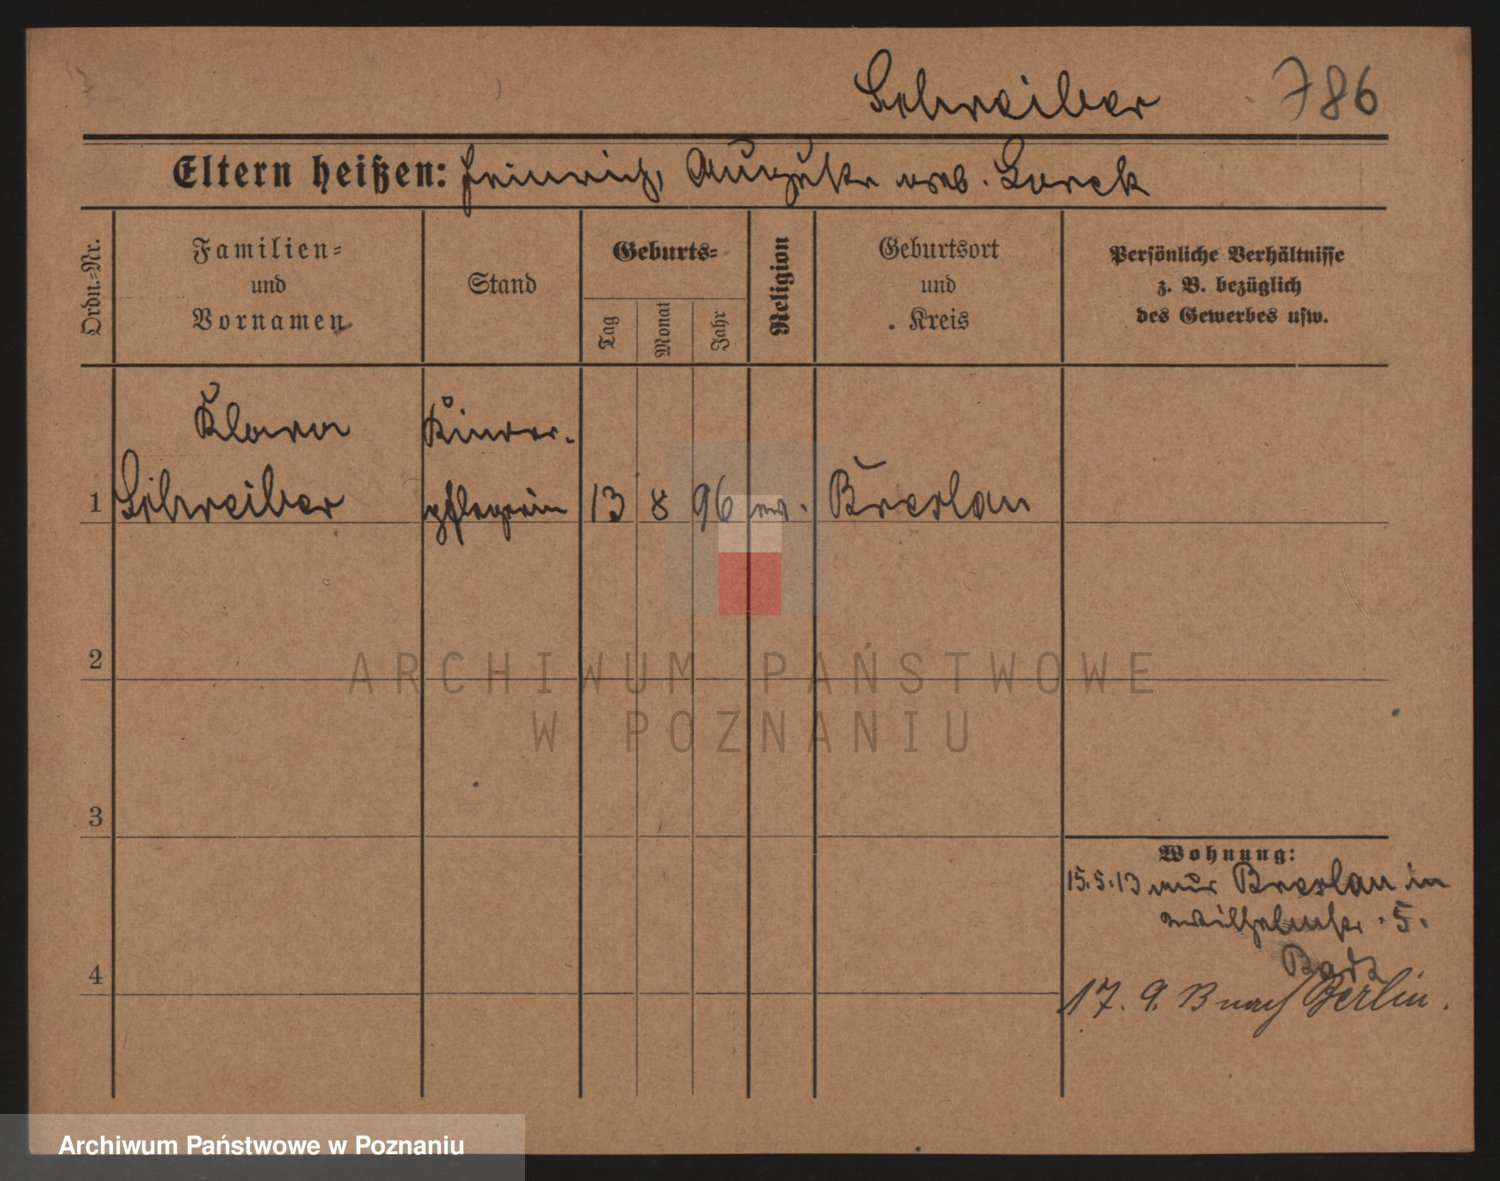 Schreiber 786
Eltern heißen: Heinrich, Auguste geb. Lorck
Ordn.-Nr.
Familien-
und
Vornamen
Stand
Geburts-
Tag
Monat
Jahr
Religion
Geburtsort
und
Kreis
Persönliche Verhältnisse
z. B. bezüglich
des Gewerbes usw.
Klara Kinder-
1 Schreiber pflegerin 13 8 96 Breslau
2
3
4
Wohnung:
15.5.13 aus Breslau in
Wilhelmstr. 5.
17. 9. 13 nach Berlin.
ARCHIWUM PAŃSTWOWE
W POZNANIU
Archiwum Państwowe w Poznaniu